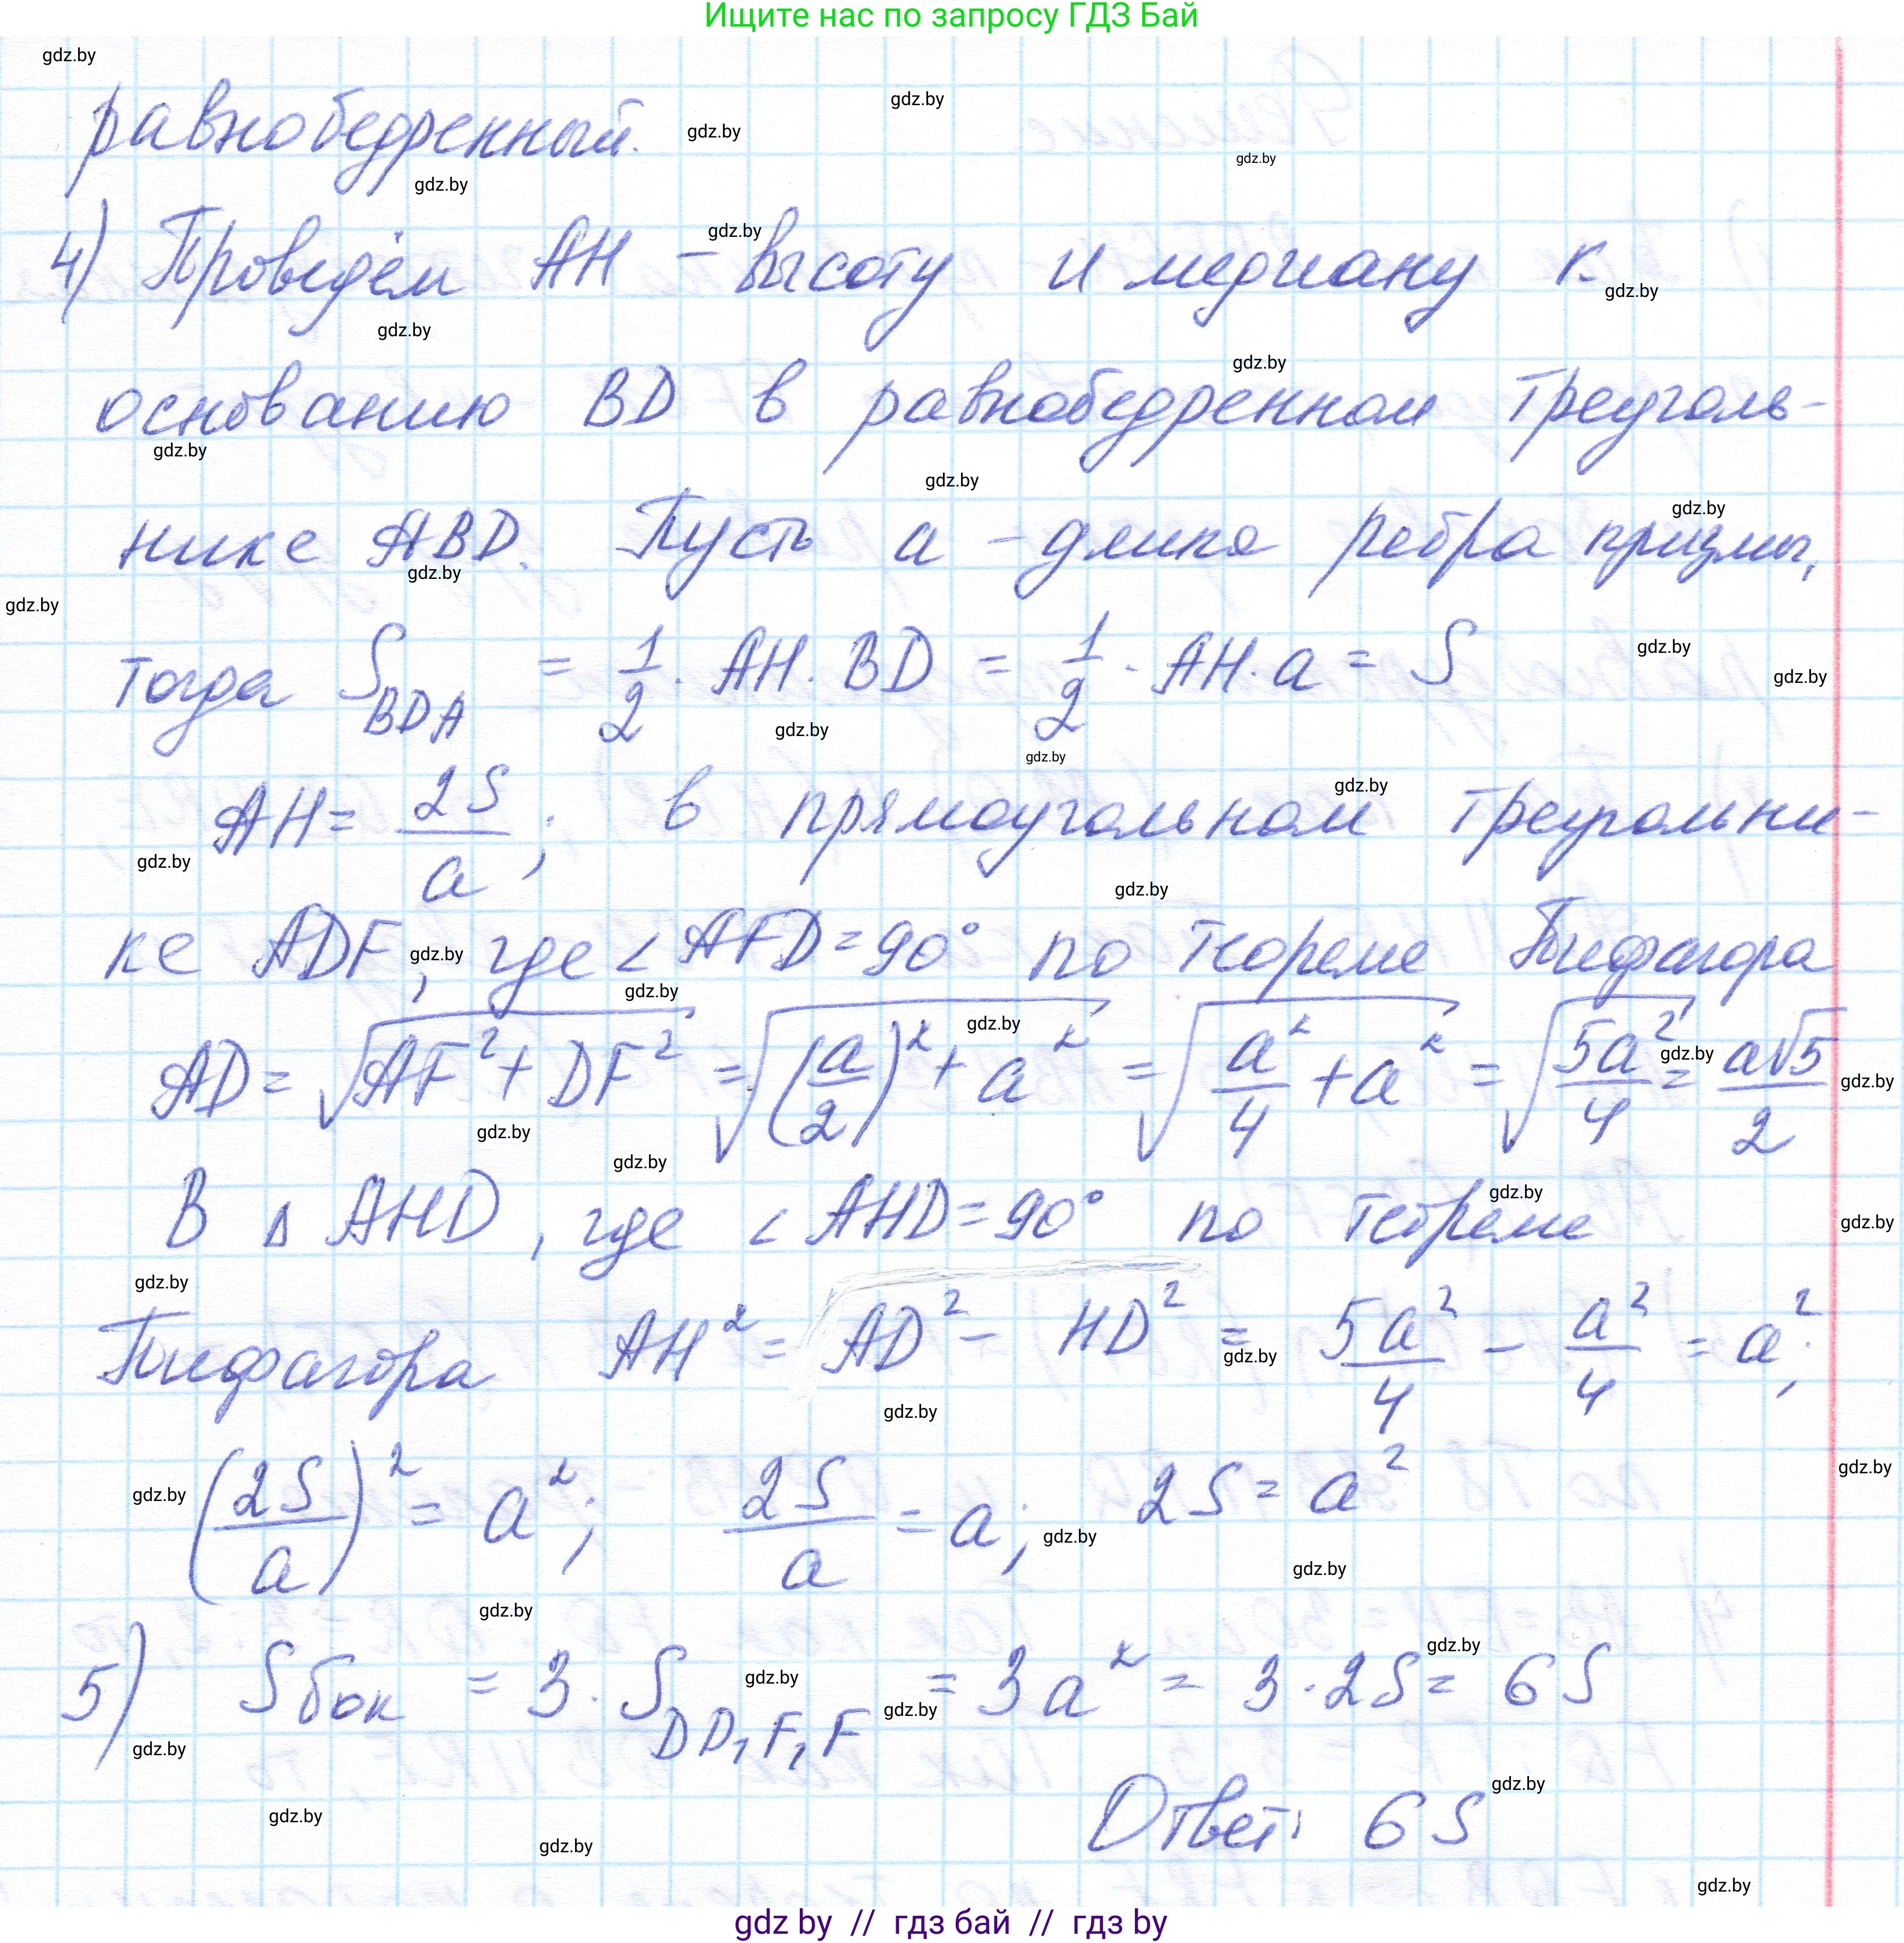 Ищите нас по запросу ГДЗ Бай
равнобедренный.
4) Проведём AH – высоту и медиану к
основанию BD в равнобедренном треуголь-
нике ABD. Пусть a – длина ребра призмы,
тогда S_BDA = 1/2 · AH · BD = 1/2 · AH · a = S
AH = 2S/a; в прямоугольном треугольни-
ке ADF, где < AFD = 90° по теореме Пифагора
AD = √(AF² + DF²) = √((a/2)² + a²) = √(a²/4 + a²) = √(5a²/4) = a√5/2
В Δ AHD, где < AHD = 90° по теореме
Пифагора AH² = AD² – HD² = 5a²/4 – a²/4 = a²;
(2S/a)² = a²; 2S/a = a; 2S = a²
5) Sбок = 3 · S_DD₁F₁F = 3a² = 3 · 2S = 6S
Ответ: 6S
gdz by // гдз бай // гдз by